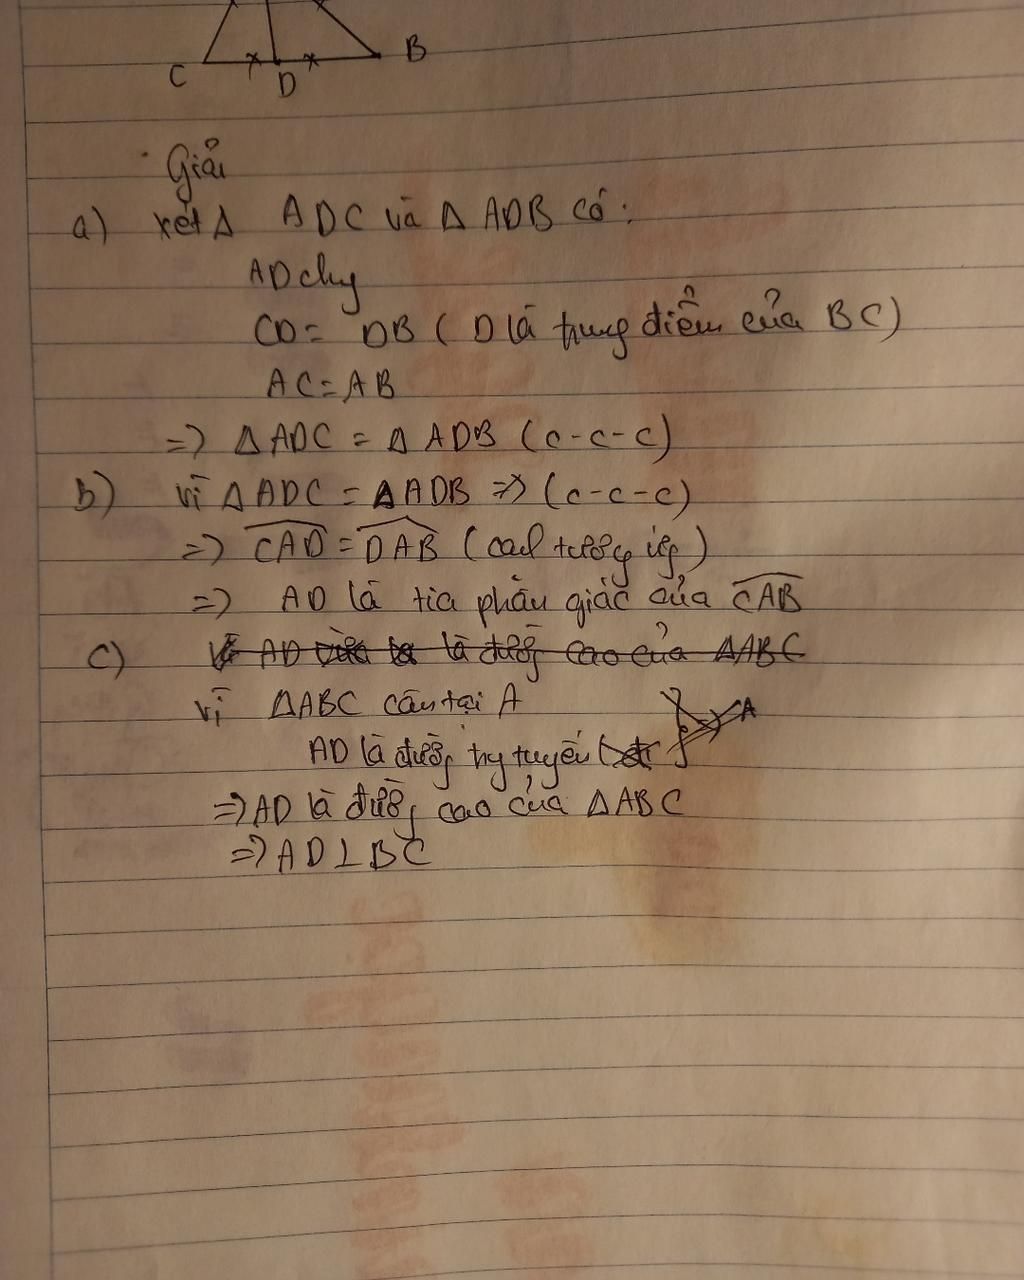 C D B
Giải
a) xét Δ ADC và Δ ADB có:
AD chg
CD = DB ( D là trung điểm của BC)
AC = AB
=> Δ ADC = Δ ADB (c-c-c)
b) vì Δ ADC = Δ ADB => (c-c-c)
=> CAD = DAB ( tương ứg )
=> AD là tia phân giác của CAB
c) Vì AD là đường cao của ΔABC
vì ΔABC cân tại A
AD là đường trg tuyến (
=> AD là đường cao của ΔABC
=> AD ⊥ BC